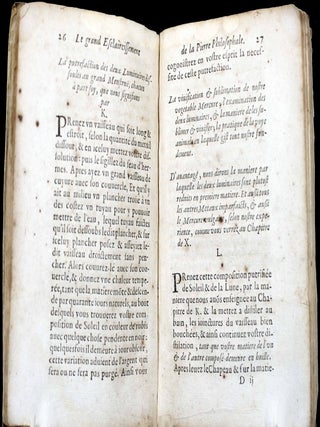 26 Le grand Esclaircissement
La putrefaction des deux Luminaires dis-
souls au grand Menstruë, chacun
a part soy, que nous signifions
par
K.
PRenez vn vaisseau qui soit long &
estroit, selon la quantité du metail
dissout, & en iceluy mettez vostre dis-
solution: puis le sigillez du seau d'her-
mes. Apres ayez vn grand vaisseau de
cuyure auec son couuercle, Et qu'il y
ait au milieu vn plancher troüé à vn
des costez vn tuyau pour y pouuoir
mettre de l'eau, lequel tuyau faites
qu'il soit dessoubs ledit plancher, & sur
iceluy plancher posez & assïegez le-
dit vaisseau droictement sans pen-
cher. Alors couurez-le auec son cou-
uercle, & donnez vne chaleur tempe-
rée, tant que la matiere monte & descen-
de par quarante iours naturels, au bout
delquels vous trouuerez vostre com-
position de Soleil en couleur de rubis
auec quelque chose pendente en noir:
quelquesfois il demeure à noir obscur,
cette variation aduient de l'argent qui
sera ou ne sera pas purgé. Ainsi vous
de la Pierre Philosophale. 27
cognoistrez en vostre esprit la neces-
sité de cette putrefaction.
La viuification & sublimation de nostre
vegetable Mercure, & exanimation des
deux luminaires, & la maniere de les su-
blimer & viuifier, la pratique de la pure
animation laquelle gist tout nostre son-
dement.
D'auantage, nous dirons la maniere par
laquelle les deux luminaires sont plustost
reduits en premiere matiere. Et aussi tous
les autres Metaux imparfaicts, & aussi
le Mercure vulgaire, selon nostre expe-
rience, comme vous verrez au Chapitre
de X.
L.
PRenez cette composition putrifiée
de Soleil & de la Lune, par la ma-
niere que nous auons enseignée au Cha-
pitre de K. & la mettez à distiller au
bain, les ionctures du vaisseau bien
bouchées, & ainsi continuez vostre di-
stillation, tant que vostre matiere de l'vn
& de l'autre composé demeure en huille.
Apres leuez le Chapeau & sur la matie-
D ij